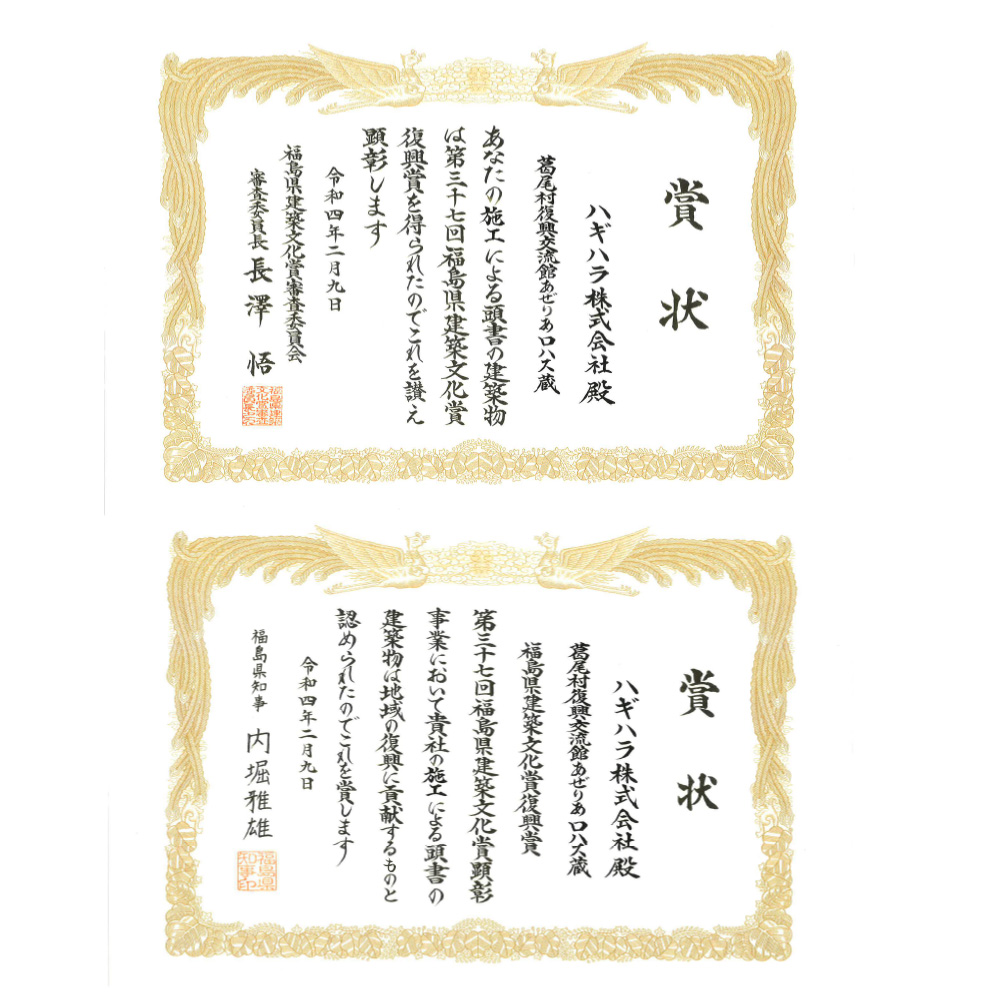 賞状
ハギハラ株式会社 殿
葛尾村復興交流館あぜりあロハス蔵
あなたの施工による頭書の建築物
は第三十七回福島県建築文化賞
復興賞を得られたのでこれを讃え
顕彰します
令和四年二月九日
福島県建築文化賞審査委員会
審査委員長 長澤 悟
賞状
ハギハラ株式会社 殿
葛尾村復興交流館あぜりあロハス蔵
福島県建築文化賞復興賞
第三十七回福島県建築文化賞顕彰
事業において貴社の施工による頭書の
建築物は地域の復興に貢献するものと
認められたのでこれを賞します
令和四年二月九日
福島県知事 内堀雅雄
福島県
知事印